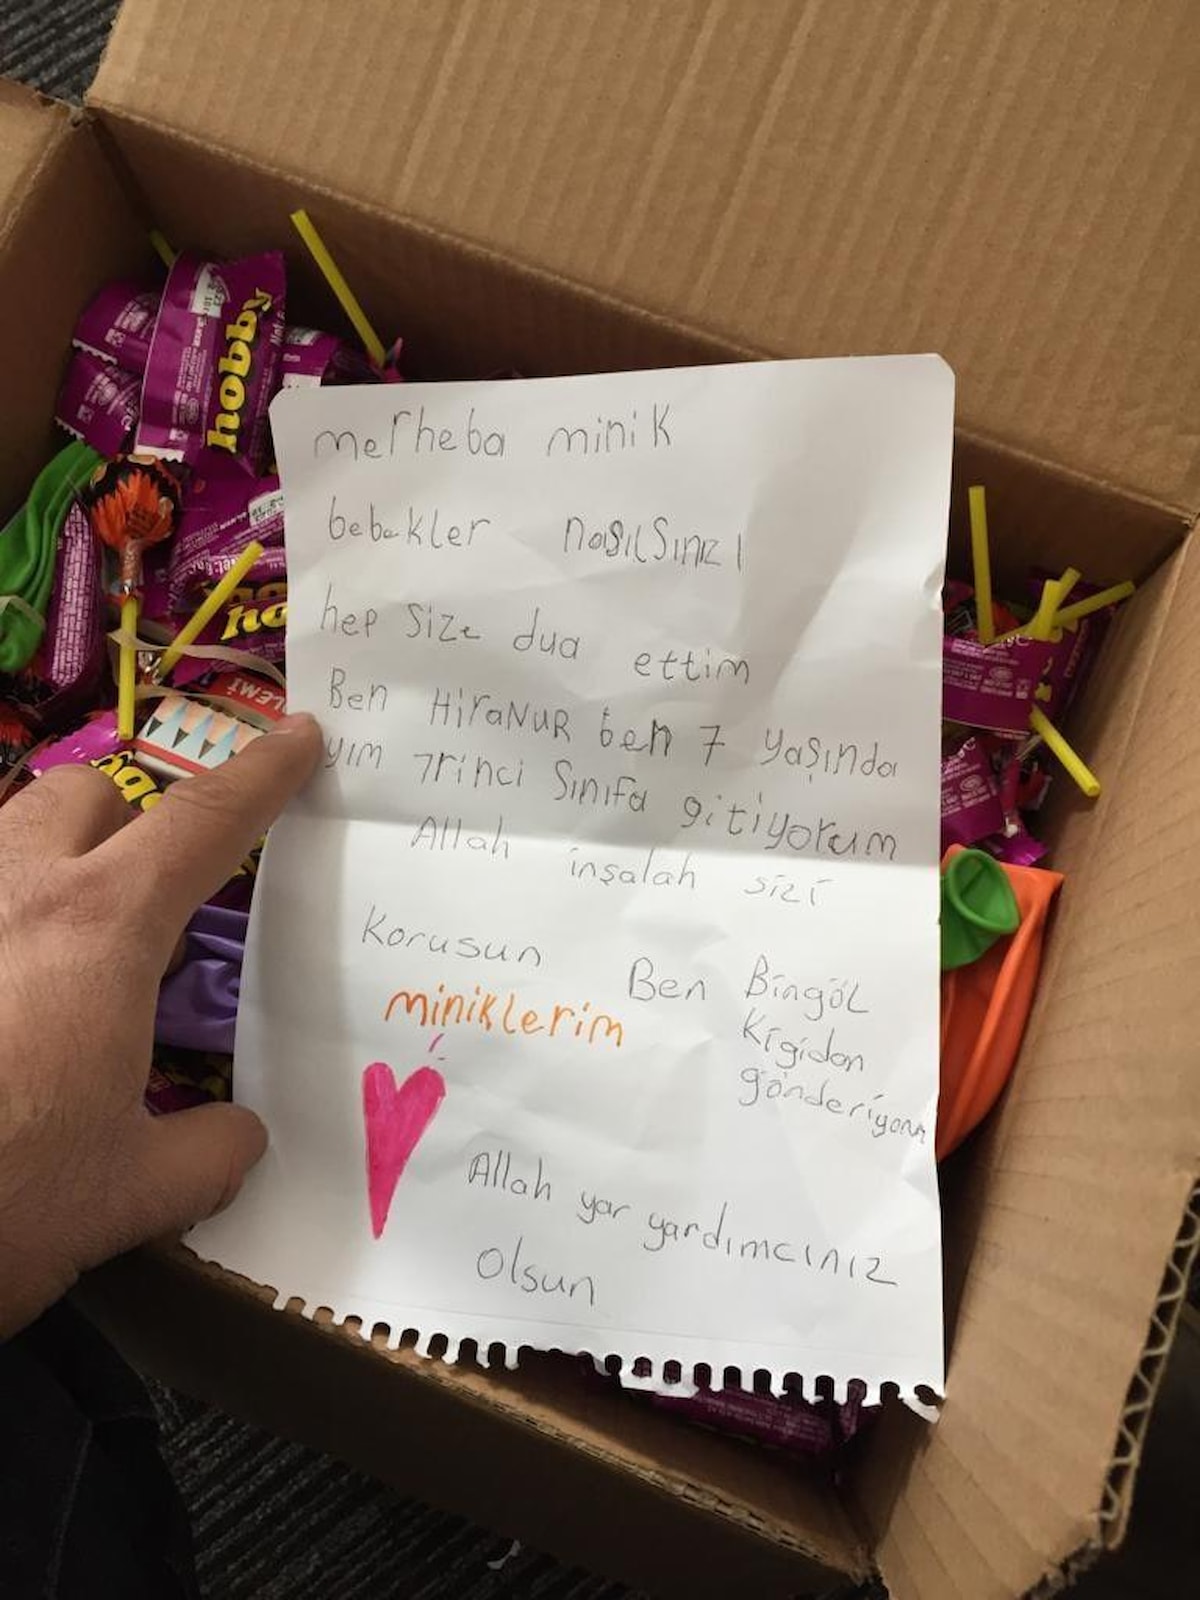 merheba minik
bebekler nasılsınız
hep size dua ettim
Ben HiraNUR ben 7 yaşında
yım 7rinci Sınıfa gitiyorum
Allah inşalah sizi
Korusun
miniklerim
Ben Bingöl
Kigidan
gönderiyorum
Allah yar yardımcınız
Olsun
hobby
LEMİ